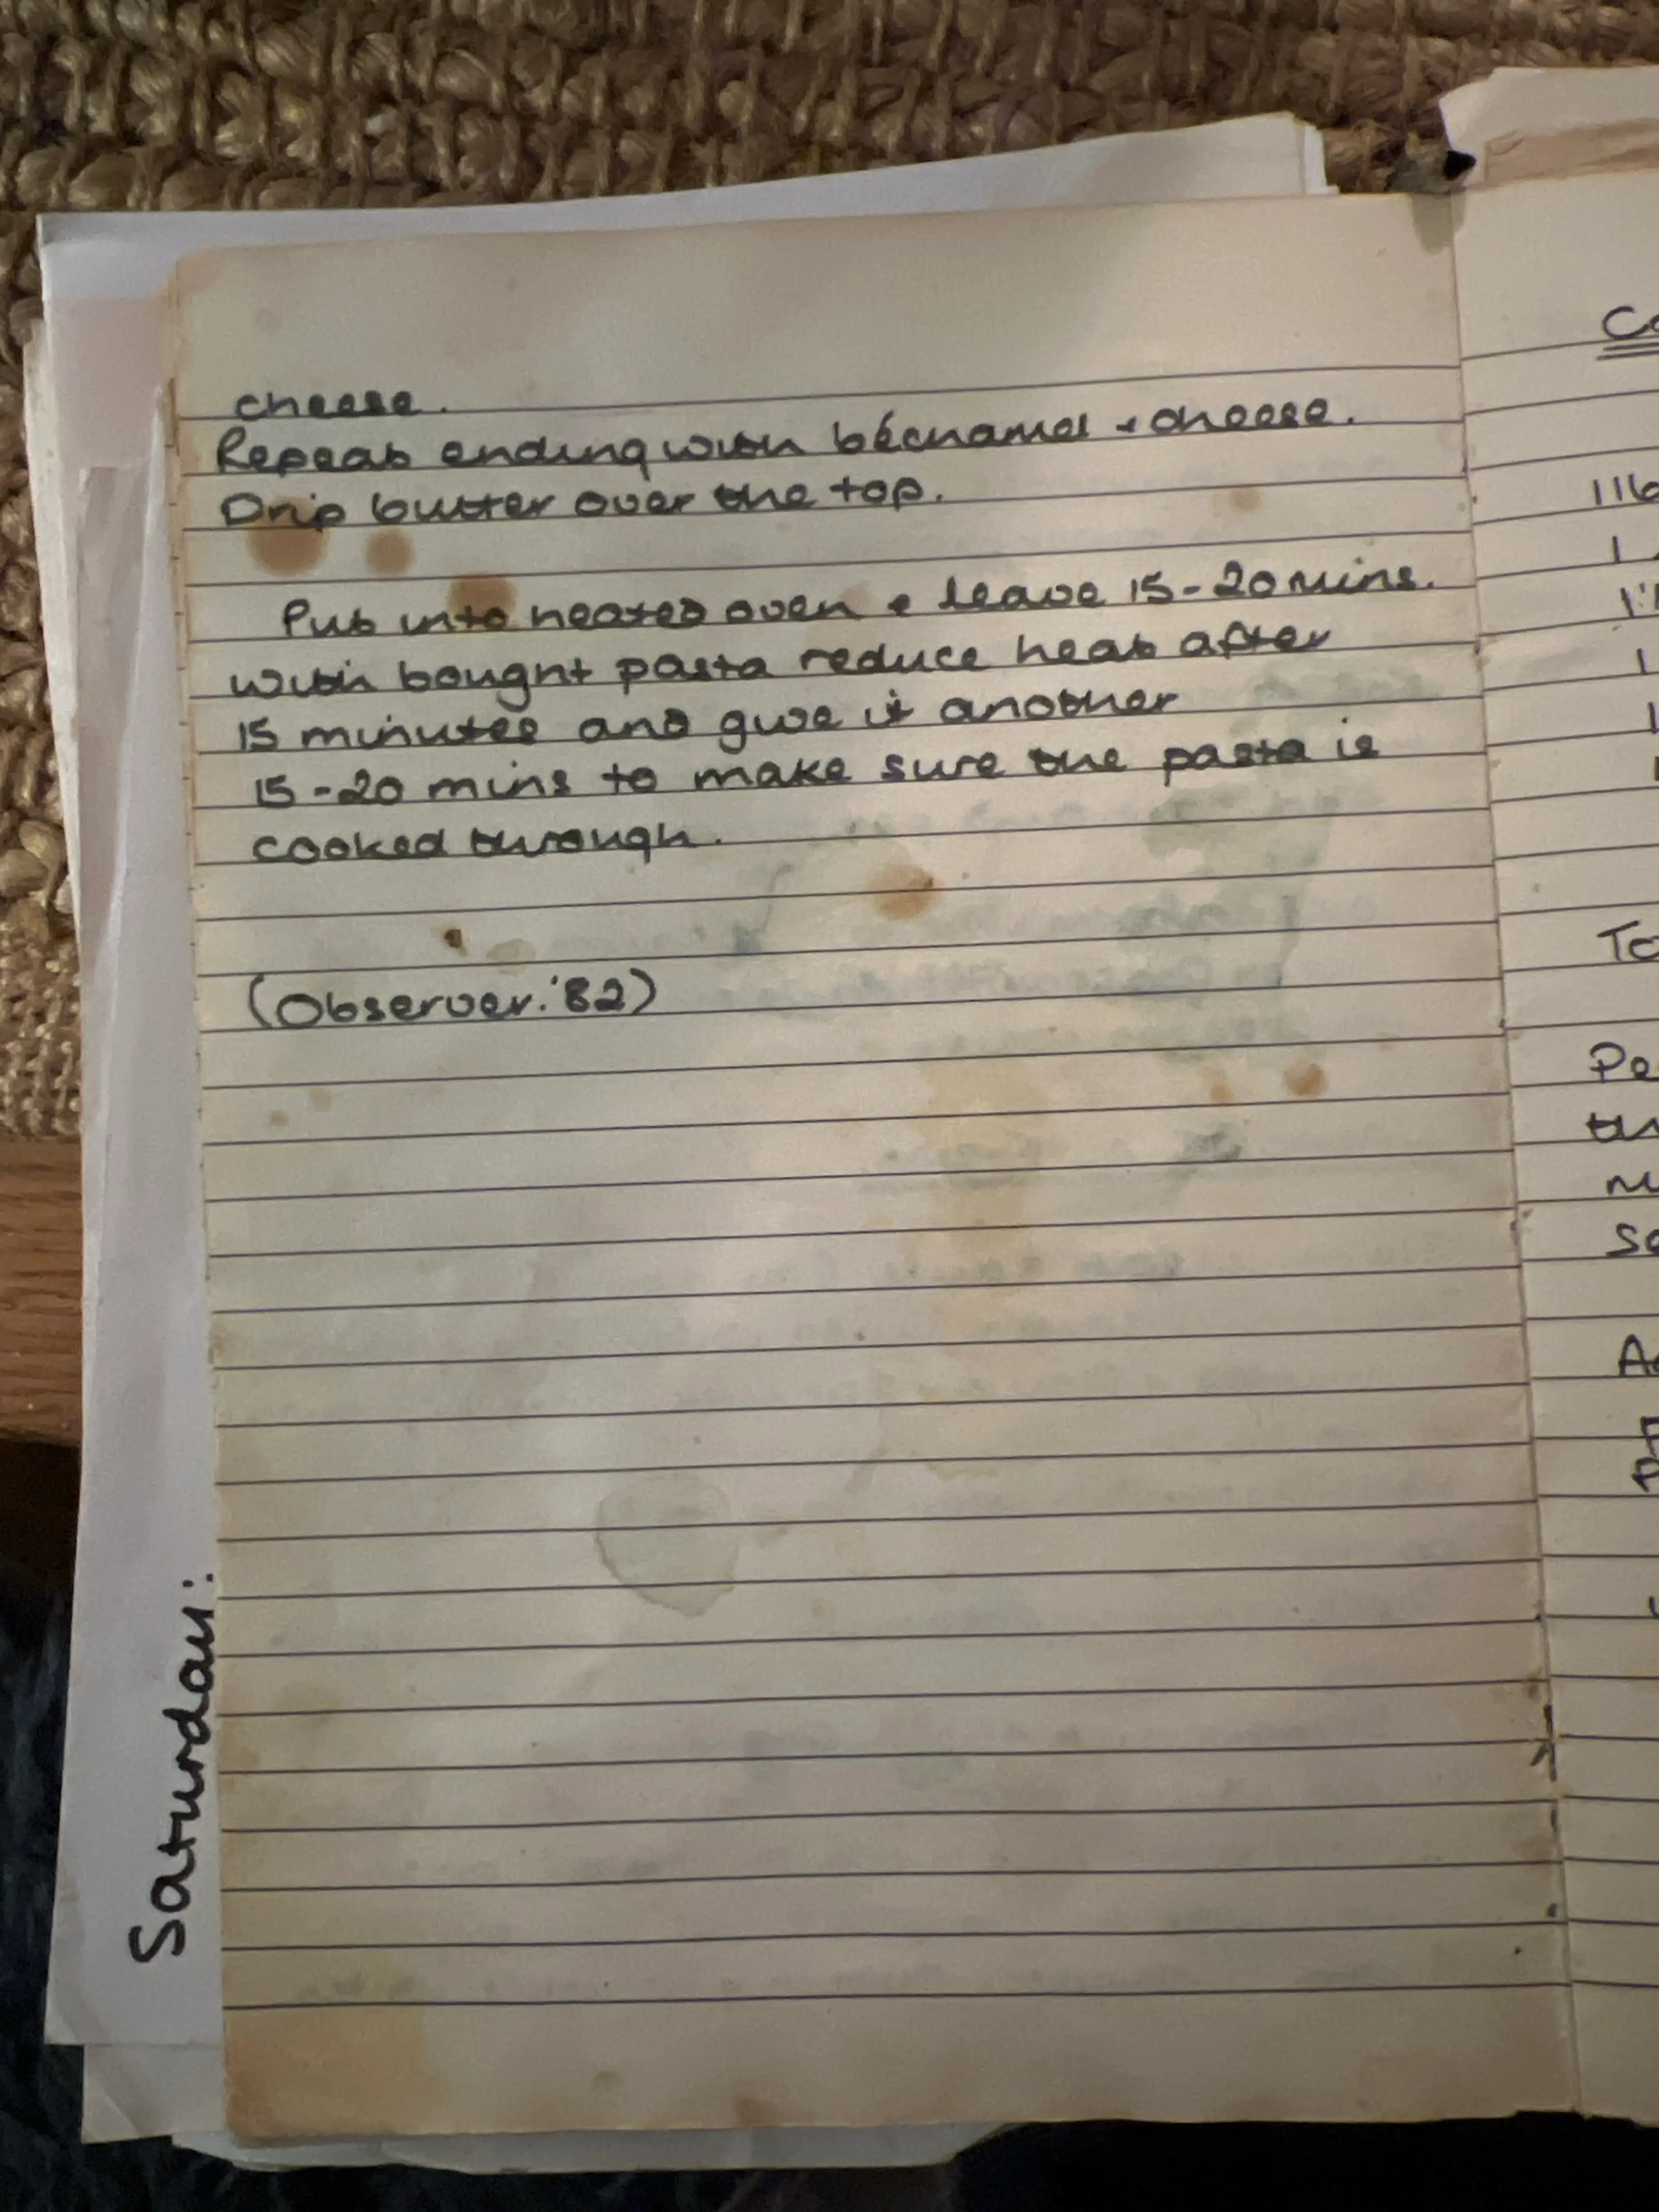 cheese.
Repeat ending with béchamel + cheese.
Drip butter over the top.
Put into heated oven + leave 15-20 mins.
With bought pasta reduce heat after
15 minutes and give it another
15-20 mins to make sure the pasta is
cooked through.
(Observer. '82)
Saturday:
Co
1lb
1
1
1
1
To
Pe
th
Sa